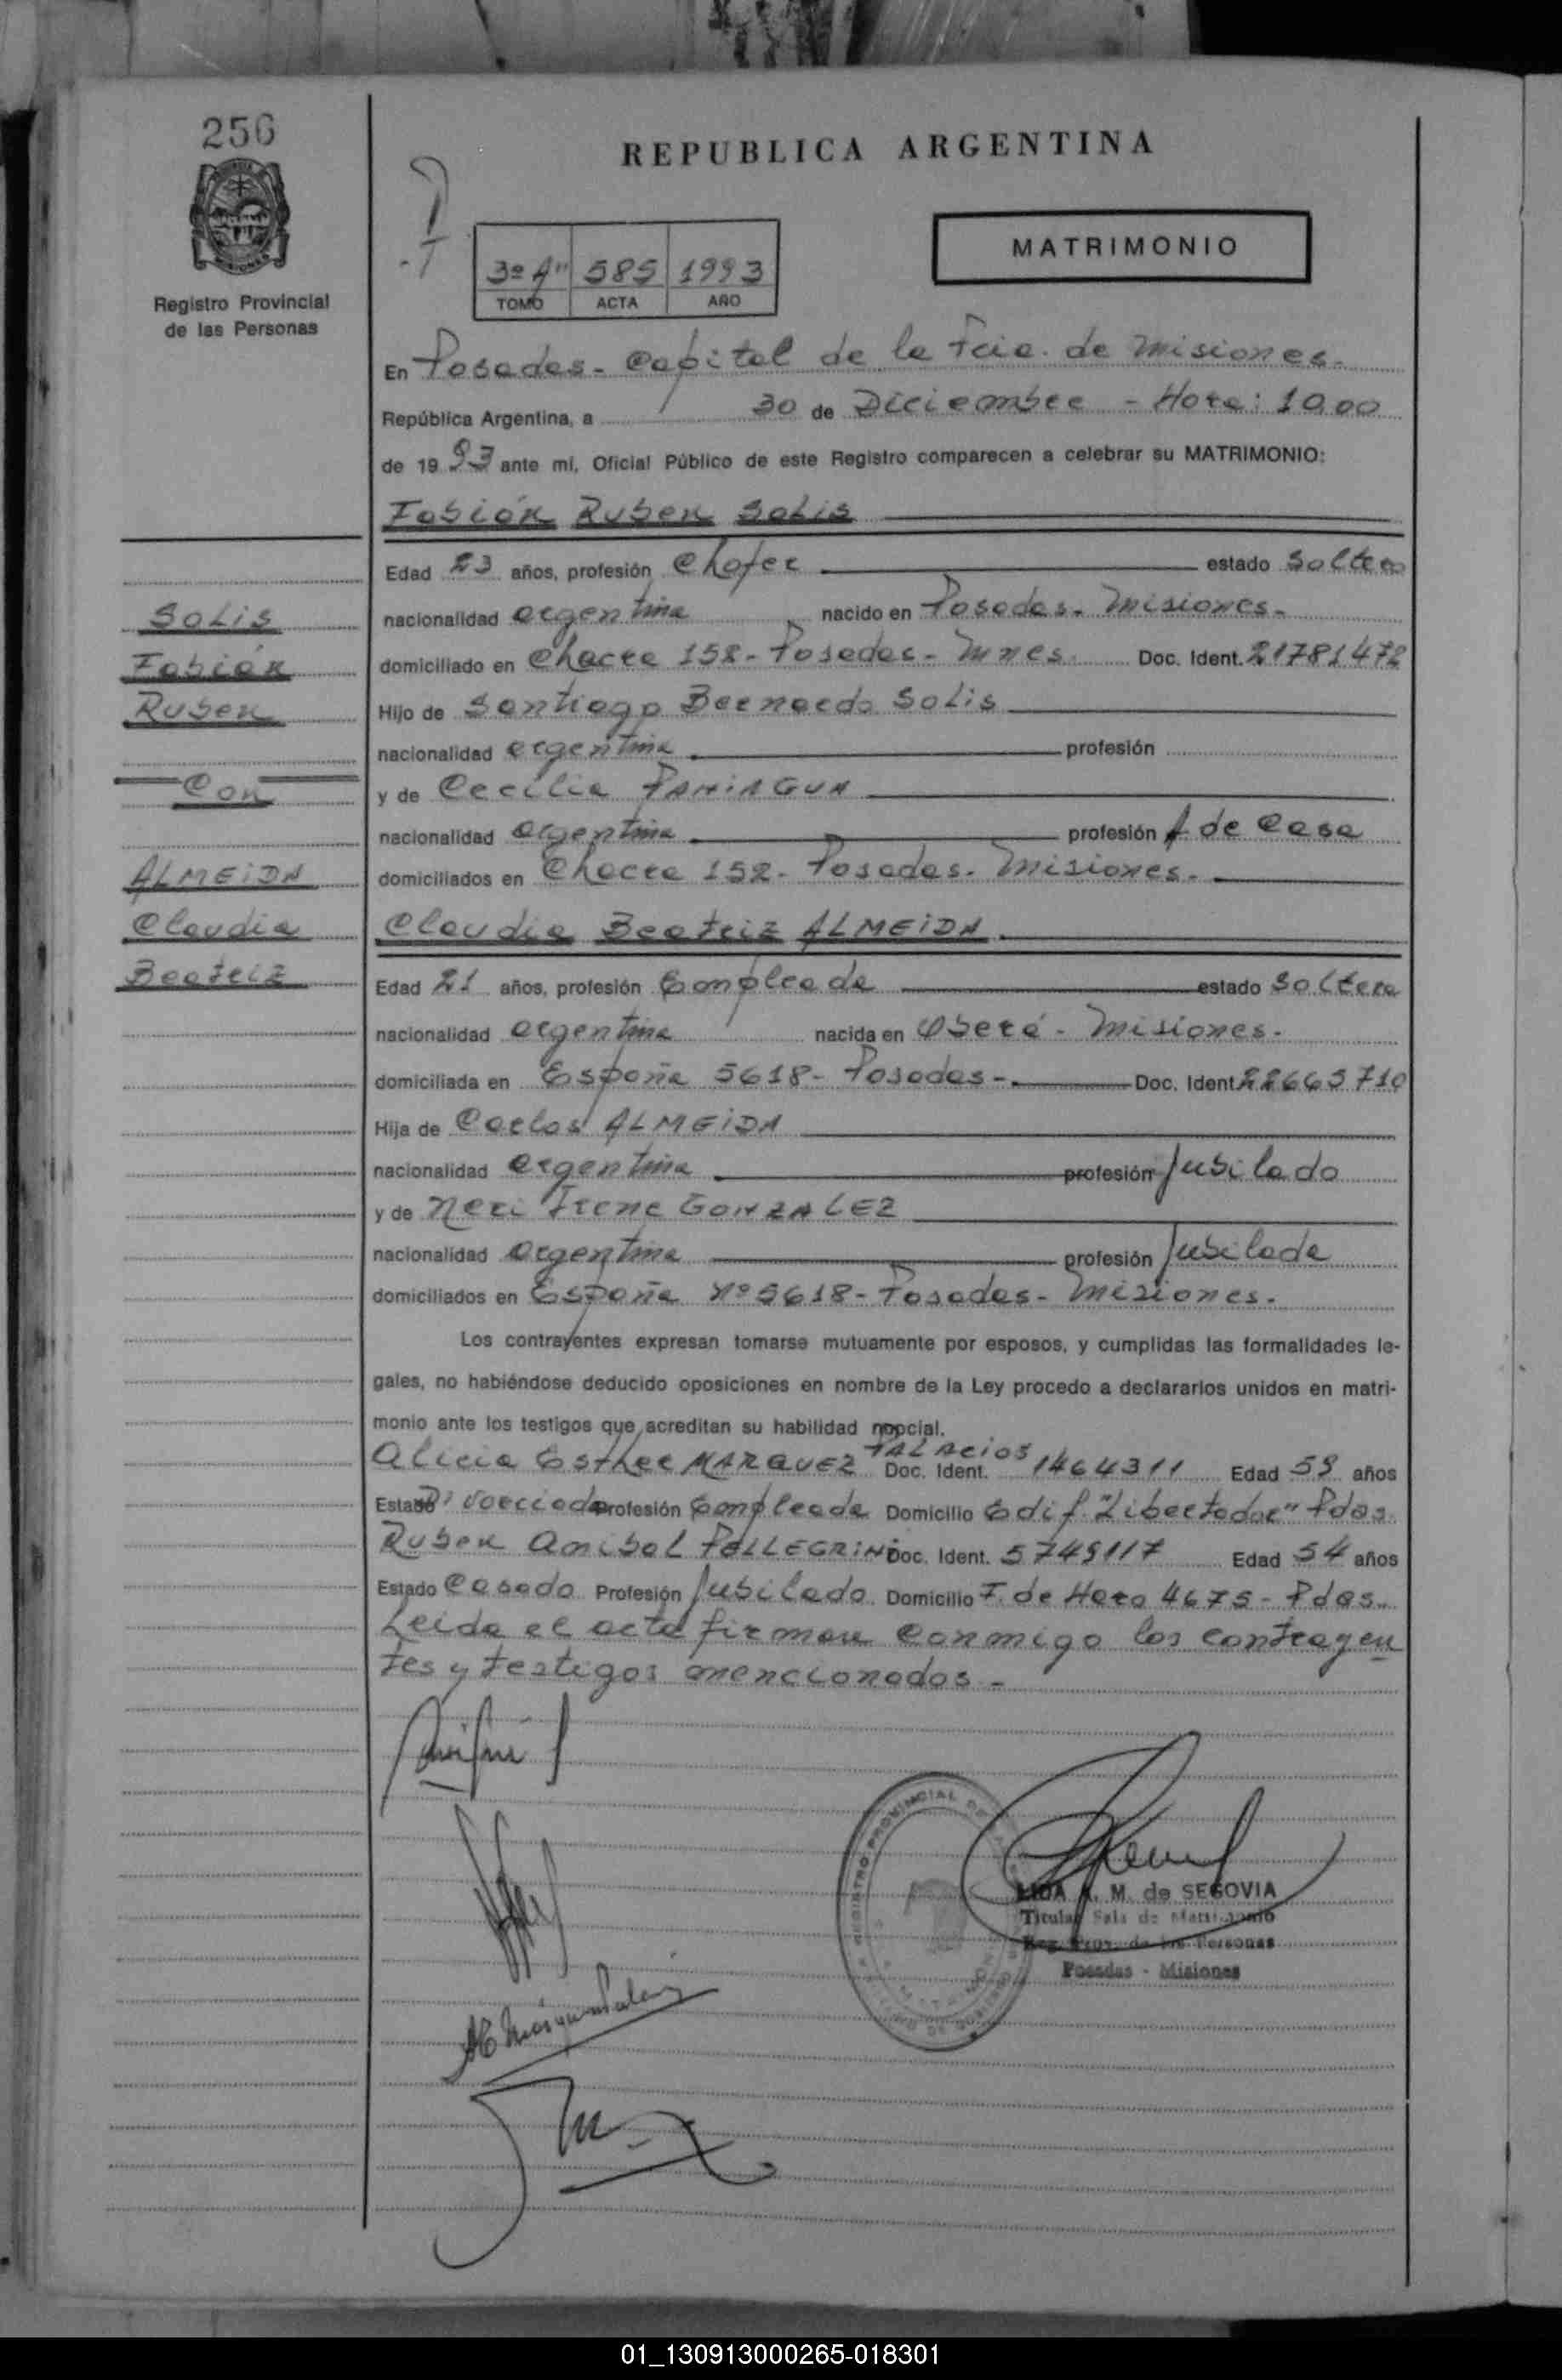 256
REPUBLICA ARGENTINA
MATRIMONIO
Registro Provincial
de las Personas
3º A" 585 1993
TOMO ACTA AÑO
En Posadas - Capital de la Pcia. de Misiones.
República Argentina, a 30 de Diciembre - Hora: 10,00
de 19 93 ante mí, Oficial Público de este Registro comparecen a celebrar su MATRIMONIO:
Fabián Ruben SOLIS
Edad 23 años, profesión Chofer estado Soltero
nacionalidad argentina nacido en Posadas - Misiones -
domiciliado en Chacra 152 - Posadas - Mnes Doc. Ident. 21781472
Hijo de Santiago Bernardo SOLIS
nacionalidad argentina profesión
y de Cecilia PANIAGUA
nacionalidad argentina profesión A de Casa
domiciliados en Chacra 152 - Posadas - Misiones -
Claudia Beatriz ALMEIDA
Edad 21 años, profesión Empleada estado Soltera
nacionalidad argentina nacida en Oberá - Misiones -
domiciliada en España 5618 - Posadas - Doc. Ident. 22665710
Hija de Carlos ALMEIDA
nacionalidad argentina profesión Jubilado
y de Neri Irene GONZALEZ
nacionalidad argentina profesión Jubilada
domiciliados en España Nº 5618 - Posadas - Misiones -
Los contrayentes expresan tomarse mutuamente por esposos, y cumplidas las formalidades le-
gales, no habiéndose deducido oposiciones en nombre de la Ley procedo a declararlos unidos en matri-
monio ante los testigos que acreditan su habilidad nopcial.
Alicia Esther MARQUEZ PALACIOS Doc. Ident. 1464311 Edad 59 años
Estado Divorciada Profesión Empleada Domicilio Edif. "Libertador" Pdas.
Ruben Anibal PELLEGRINI Doc. Ident. 5749117 Edad 54 años
Estado Casado Profesión Jubilado Domicilio F. de Haro 4675 - Pdas.
Leida el acta firman conmigo los contrayen
tes y testigos mencionados -
SOLIS
Fabián
Ruben
Con
ALMEIDA
Claudia
Beatriz
REGISTRO PROVINCIAL DE
M. de SEGOVIA
Titular Sala de Matrimonio
Reg. Prov. de las Personas
Posadas - Misiones
01_130913000265-018301